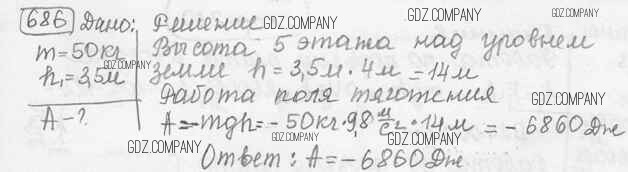 686 Дано: Решение GDZ.COMPANY GDZ.COMPANY
m = 50 кг Высота 5 этажа над уровнем
h₁ = 3,5 м GDZ.COMPANY земли h = 3,5 м · 4 м = 14 м
A - ? Работа поля тяготения GDZ.COMPANY
A = -mgh = - 50 кг · 9,8 м/с² · 14 м = - 6860 Дж
GDZ.COMPANY GDZ.COMPANY
Ответ: A = - 6860 Дж
GDZ.COMPANY